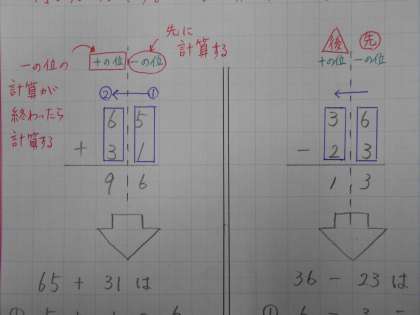 先に
計算する
一の位の
計算が
終わったら
計算する
十の位 一の位
② ①
6 5
+ 3 1
9 6
65 + 31 は
後 先
十の位 一の位
3 6
- 2 3
1 3
36 - 23 は